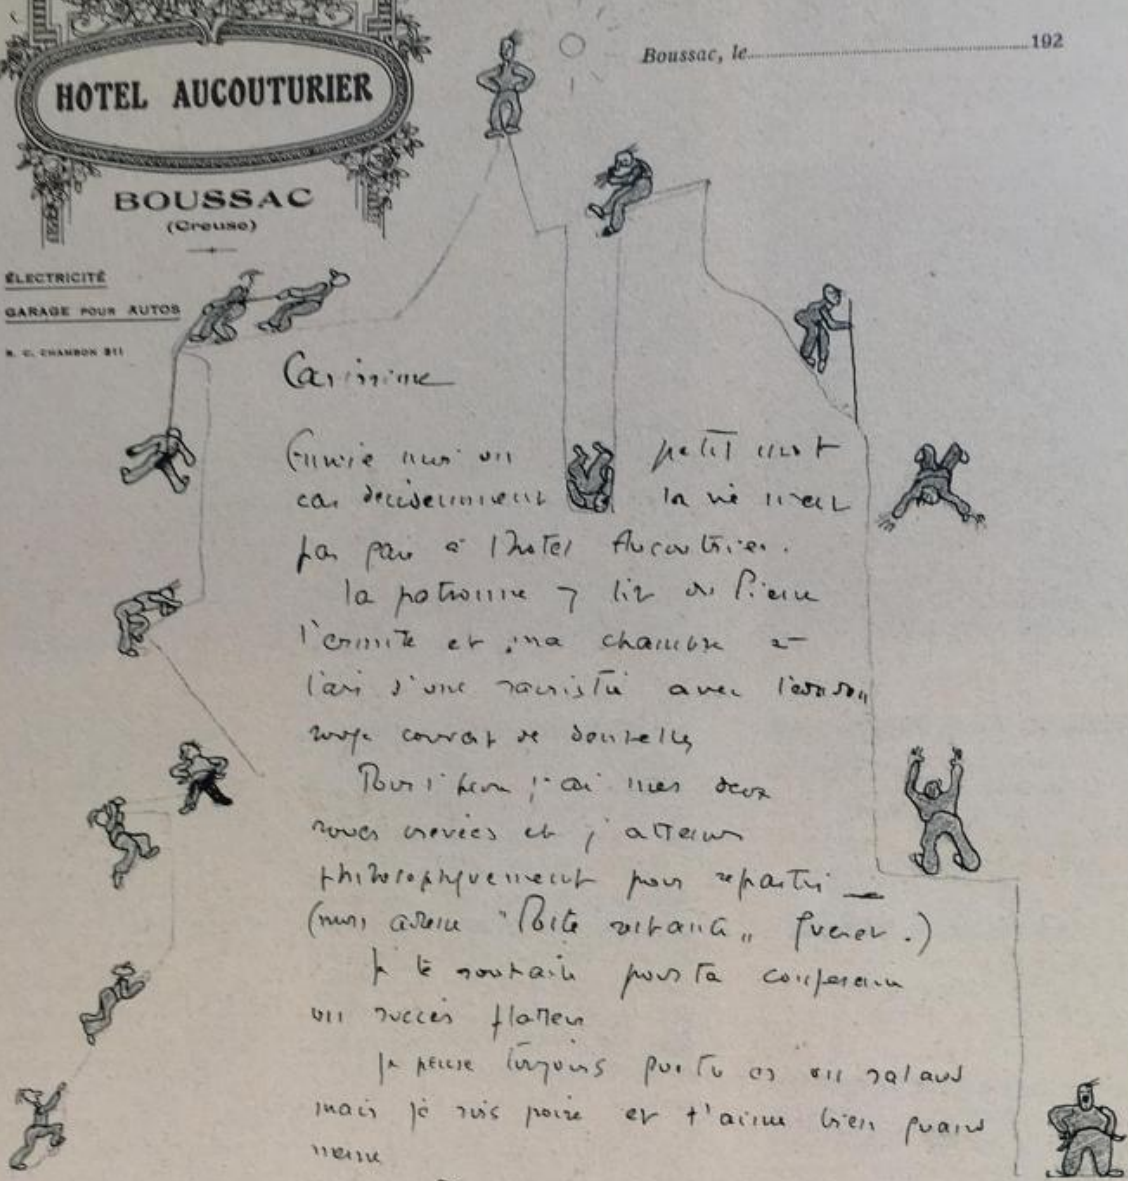 HOTEL AUCOUTURIER
BOUSSAC
(Creuse)
ÉLECTRICITÉ
GARAGE POUR AUTOS
R. C. CHAMBON 311
Boussac, le 192
Carissime
Envoie moi un petit mot
car décidemment la vie n'est
pas gaie à l'hotel Aucouturier.
la patronne y lit du Pierre
l'ermite et ma chambre a
l'air d'une sacristie avec l'édredon
rouge couvert de dentelles
Pour l'heure j'ai mes deux
roues crevées et j'attends
philosophiquement pour repartir
(mon adresse "Poste restante" Gueret.)
Je te souhaite pour ta conférence
un succès flatteur
Je pense toujours que tu es un salaud
mais je suis poire et t'aime bien quand
meme